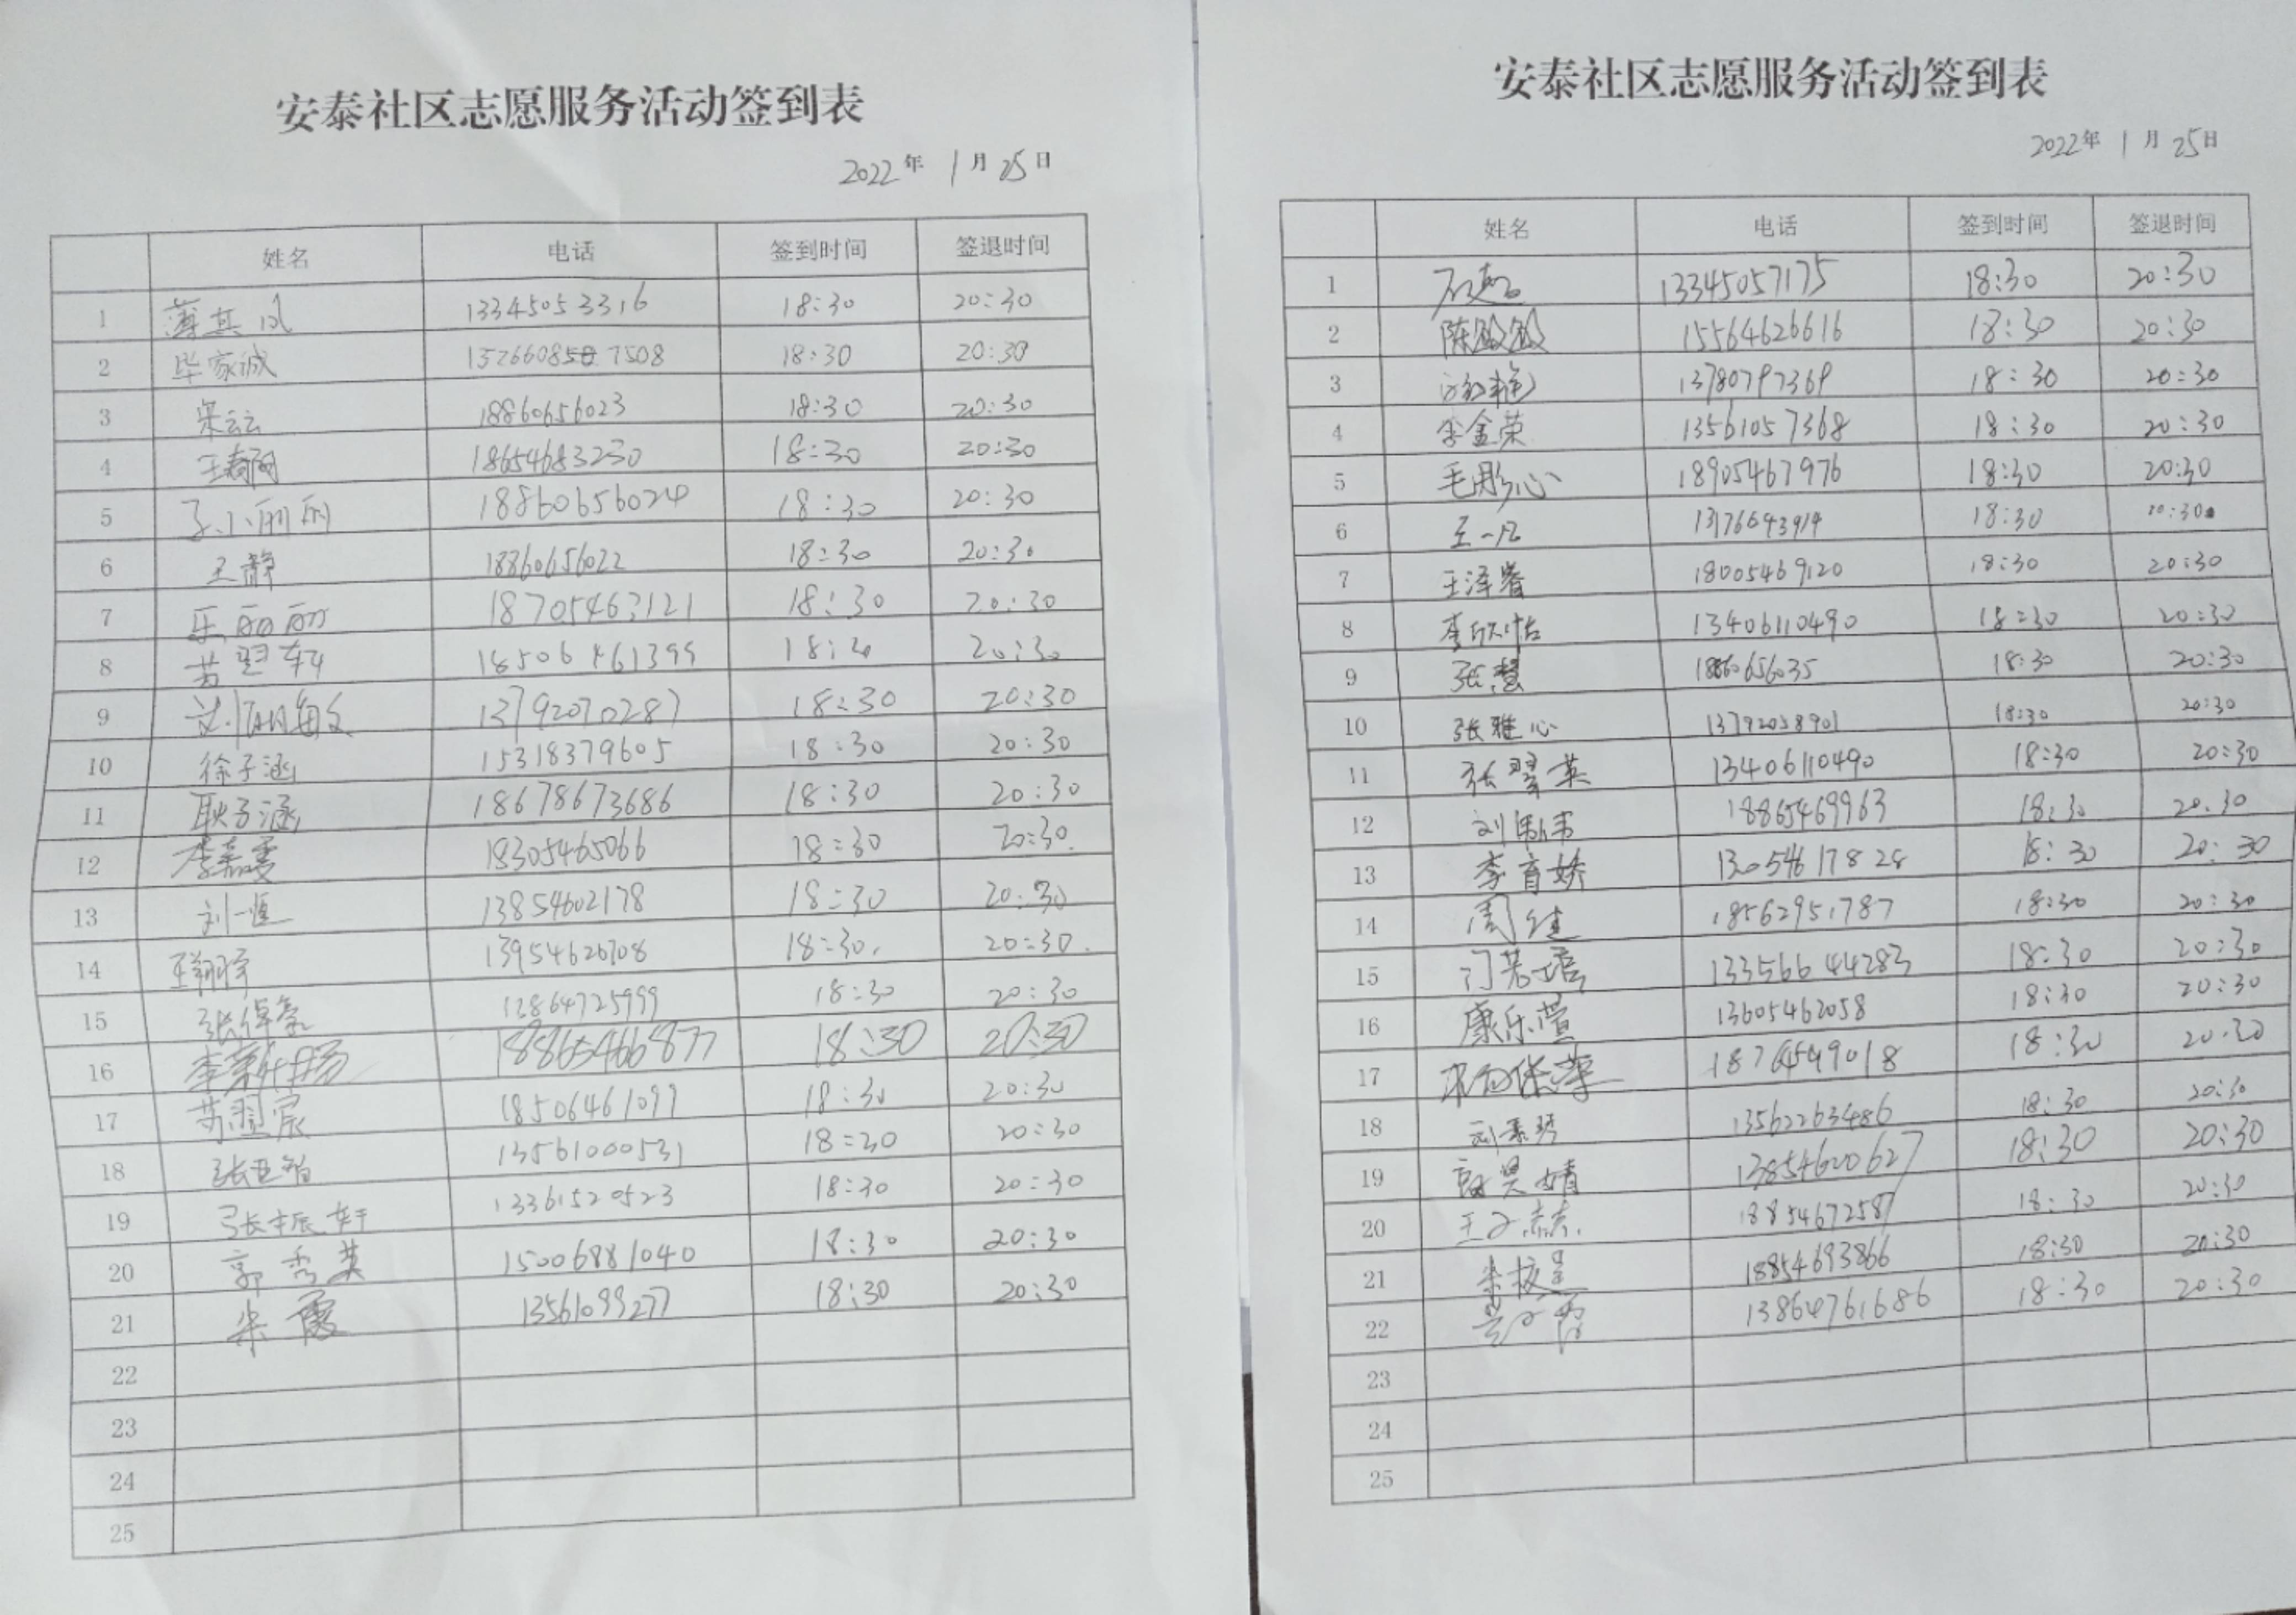 安泰社区志愿服务活动签到表
2022年 1月25日
姓名 电话 签到时间 签退时间
1 薄其风 13345053316 18:30 20:30
2 毕家诚 7508 18:30 20:30
3 宋云云 18860656023 18:30 20:30
4 18654683230 18:30 20:30
5 丽丽 18860656024 18:30 20:30
6 王静 18860656022 18:30 20:30
7 丽丽 18705463121 18:30 20:30
8 20:30
9 13792070287 18:30 20:30
10 徐子涵 15318379605 18:30 20:30
11 耿子涵 18678673686 18:30 20:30
12 李嘉雯 18305465066 18:30 20:30
13 刘一恒 13854602178 18:30 20:30
14 13954626708 18:30. 20:30.
15 18:30 20:30
16 18865466877 18:30 20:30
17 苏翌宸 18506461099 18:30 20:30
18 13561000531 18:30 20:30
19 张振轩 13361520523 18:30 20:30
20 郭秀英 15006881040 18:30 20:30
21 宋霞 13561099277 18:30 20:30
22
23
24
25
安泰社区志愿服务活动签到表
2022年 1月25日
姓名 电话 签到时间 签退时间
1 13345057175 18:30 20:30
2 陈敏敏 15564626616 18:30 20:30
3 13780797369 18:30 20:30
4 李金荣 13561057368 18:30 20:30
5 毛彤心 18905467976 18:30 20:30
6 王一凡 18:30
7 王泽睿 18005469120 18:30 20:30
8 李欣怡 13406110490 18:30 20:30
9 张慧 18:30 20:30
10 张雅心 13792058901 18:30 20:30
11 张翠英 13406110490 18:30 20:30
12 刘伟 18865469963 18:30 20:30
13 李育娇 13054617828 18:30 20:30
14 周健 18562951787 18:30 20:30
15 13356644283 18:30 20:30
16 康乐萱 13605462058 18:30 20:30
17 18:30 20:30
18 13562263486 18:30 20:30
19 昊婧 13854620627 18:30 20:30
20 18854672587 18:30 20:30
21 18854693866 18:30 20:30
22 13864761686 18:30 20:30
23
24
25